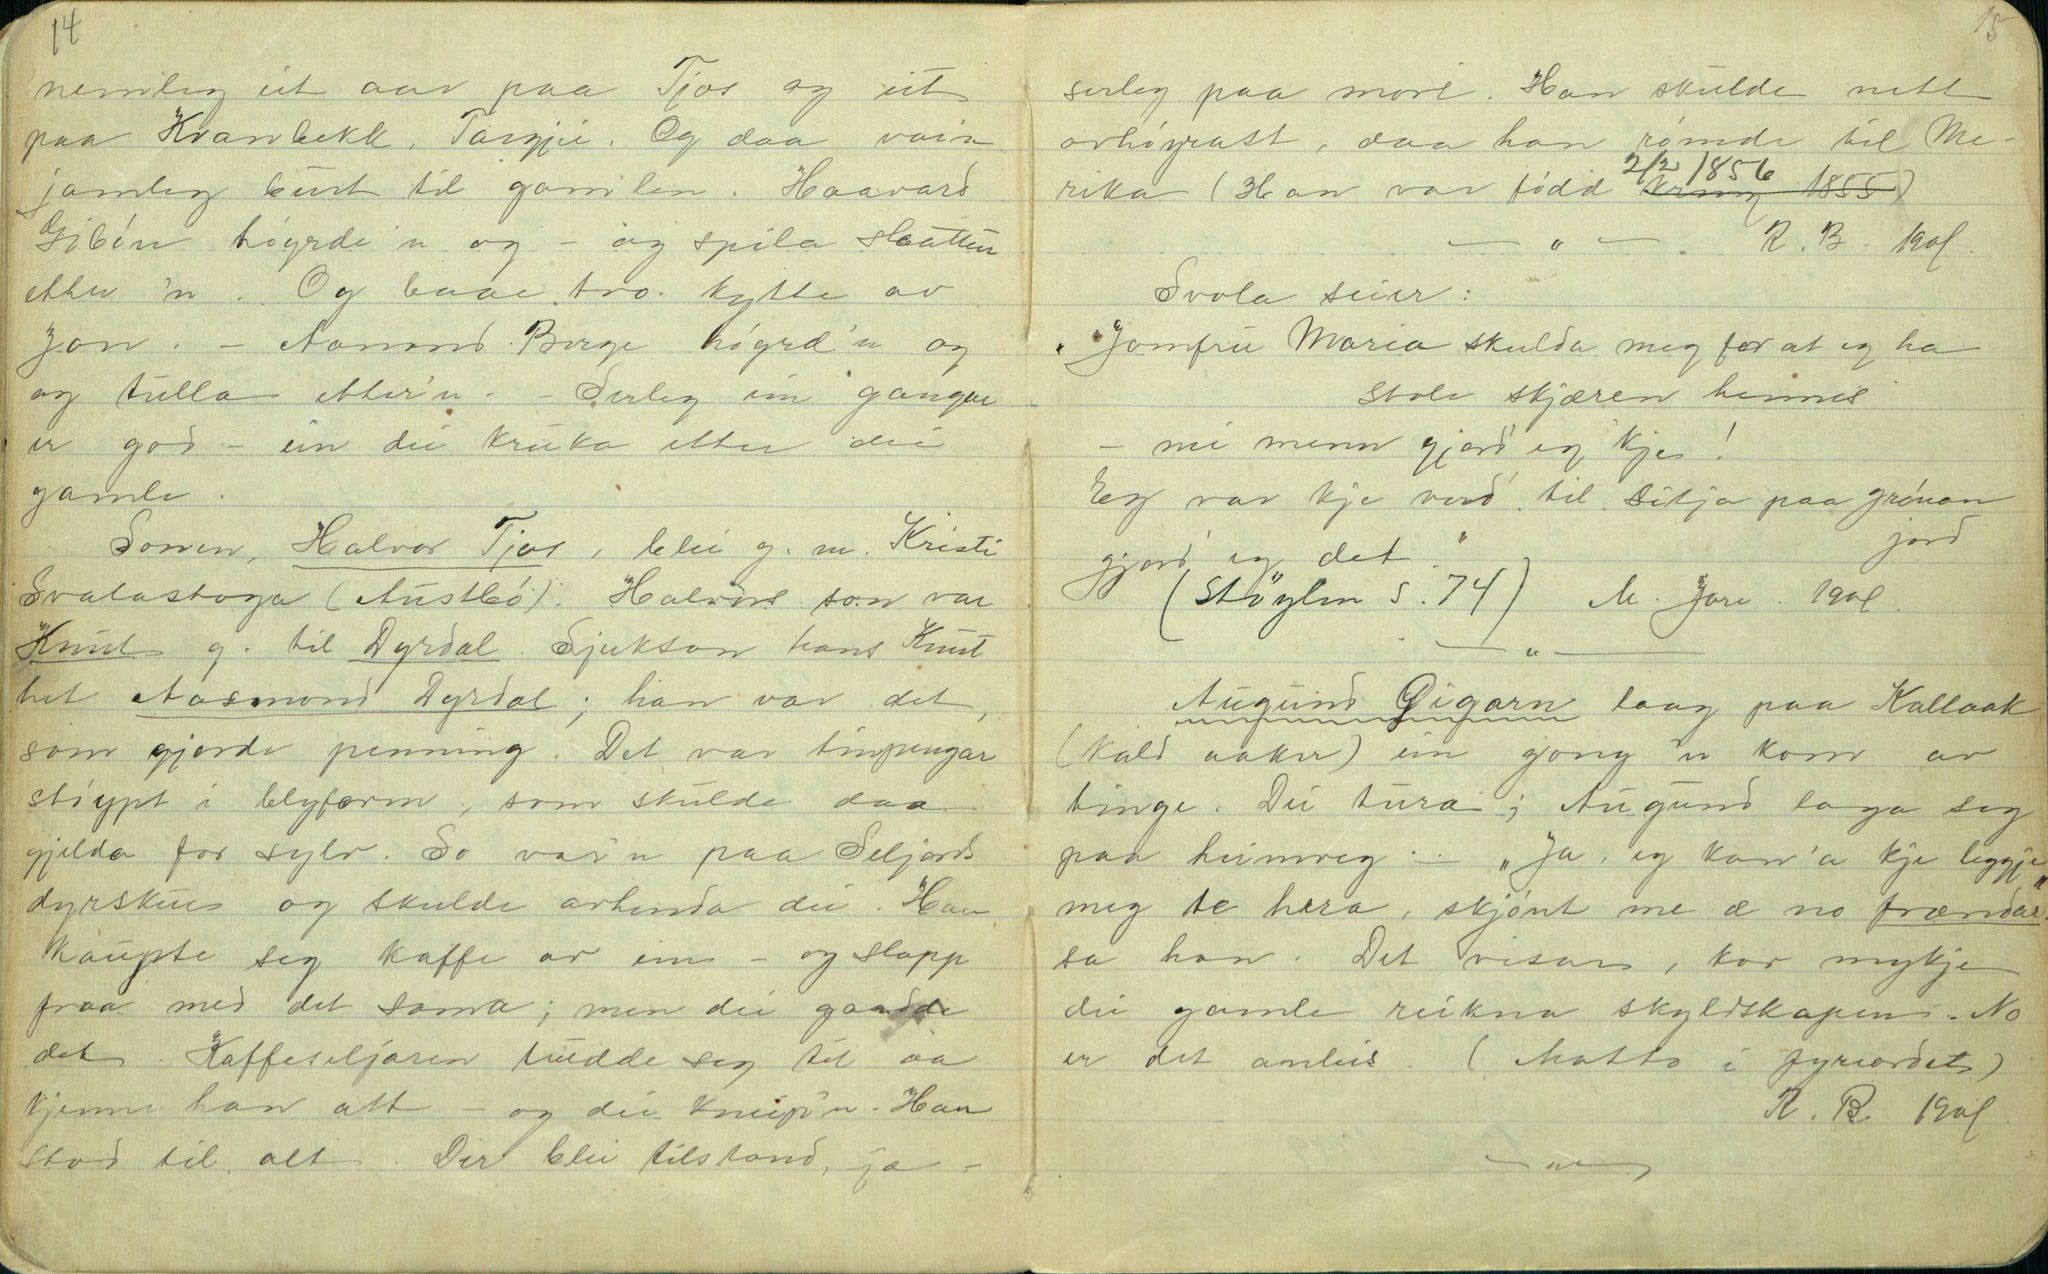 14
nemleg eit aar paa Tjos og eit
paa Kvanbekk, Targjei. Og daa var'n
jamleg burt til gamlen. Haavard
Gibøn høyrde 'n og - og spila slaatten
etter 'n. Og baae tvo kytte av
Jon. - Aamund Borge høyrd'n og
og tulla etter'n. - Serleg ein gangar
er god - ein dei kruka etter dei
gamle.
Sonen, Halvor Tjos, blei g. m. Kristi
Svalastoga (Austbø). Halvors son var
Knut g. til Dyrdal. Sjukson hans Knut
het Aasmond Dyrdal; han var det,
som gjorde penning. Det var tinpengar
støypt i blyform, som skulde daa
gjelda for sylv. So var'n paa Seljords
dyrskue og skulde avhenda dei. Han
kaupte seg kaffe av ein - og slapp
fraa med det sama; men dei gaadde
det. Kaffeseljaren tudde seg til aa
kjenne han att - og dei kneip'n. Han
stod til alt. Der blei tilstand, ja -
15
serleg paa mori. Han skulde nett
avhøyrast, daa han rømde til Me-
rika (Han var fødd 2/2 1856 kring 1855)
— " — R. B. 1901.
Svola seier:
"Jomfru Maria skulda meg for at eg ha
stole skjæren hennes
- nei menn gjord' eg 'kje!
Eg var kje verd' til sitja paa grønan
jord
gjord' eg det."
(Støylen s. 74) M. Jore. 1901.
— " —
Augund Øigarn laag paa Kallaak
(kald aaker) ein gong 'n kom av
tinge. Dei tura; Augund laga seg
paa heimveg. - "Ja, eg kan'a kje leggje
meg te hera, skjønt me æ no frændar"
sa han. Det visar, kor mykje
dei gamle reikna skyldskapen. No
er det anleis. (Motto i fyreordet)
R. B. 1901.
— " —